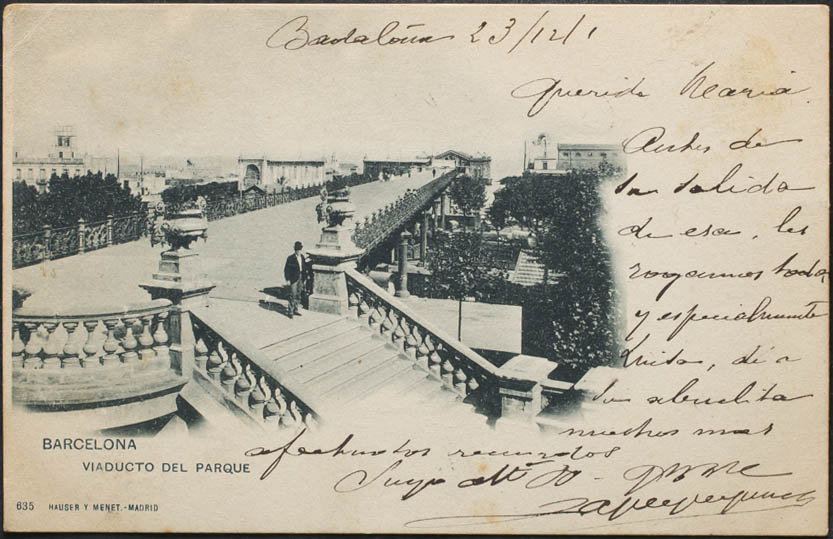 Badalona 23/12/1
Querida Maria.
Antes de
su salida
de esa, les
rogamos todos
y especialmente
Quita, dé a
la abuelita
muchos mas
afectuosos recuerdos
Suyo
BARCELONA
VIADUCTO DEL PARQUE
635 HAUSER Y MENET.-MADRID